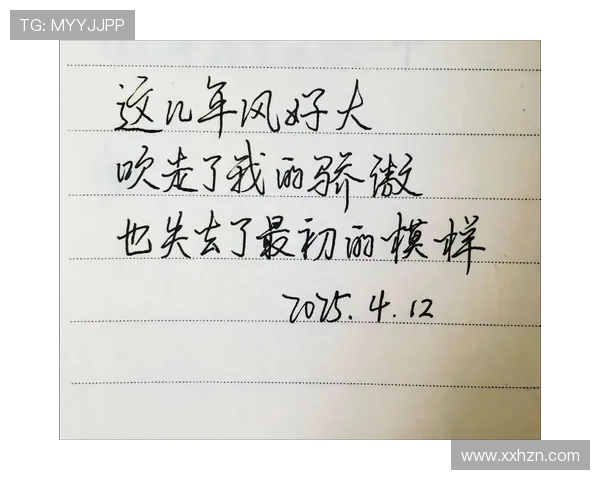 TG: MYYJJPP
这几年风好大
吹走了我的骄傲
也失去了最初的模样
2025.4.12
www.xxhzn.com